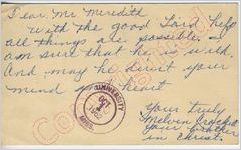 Dear Mr Meredith
with the good Lord help
all things are possible. I
am sure that he is with.
And may he direct your
mind & heart
Your truly
Melvin Crockett
your brother
in Christ.
UNIVERSITY
OCT
MISS.